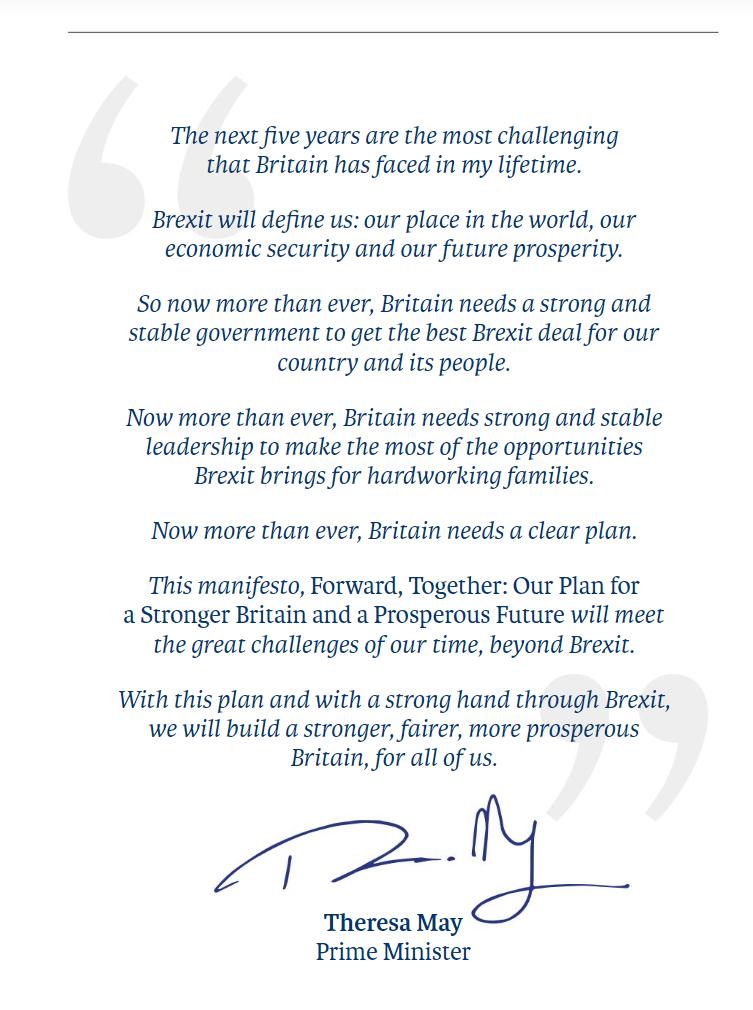 The next five years are the most challenging
that Britain has faced in my lifetime.
Brexit will define us: our place in the world, our
economic security and our future prosperity.
So now more than ever, Britain needs a strong and
stable government to get the best Brexit deal for our
country and its people.
Now more than ever, Britain needs strong and stable
leadership to make the most of the opportunities
Brexit brings for hardworking families.
Now more than ever, Britain needs a clear plan.
This manifesto, Forward, Together: Our Plan for
a Stronger Britain and a Prosperous Future will meet
the great challenges of our time, beyond Brexit.
With this plan and with a strong hand through Brexit,
we will build a stronger, fairer, more prosperous
Britain, for all of us.
Theresa May
Prime Minister